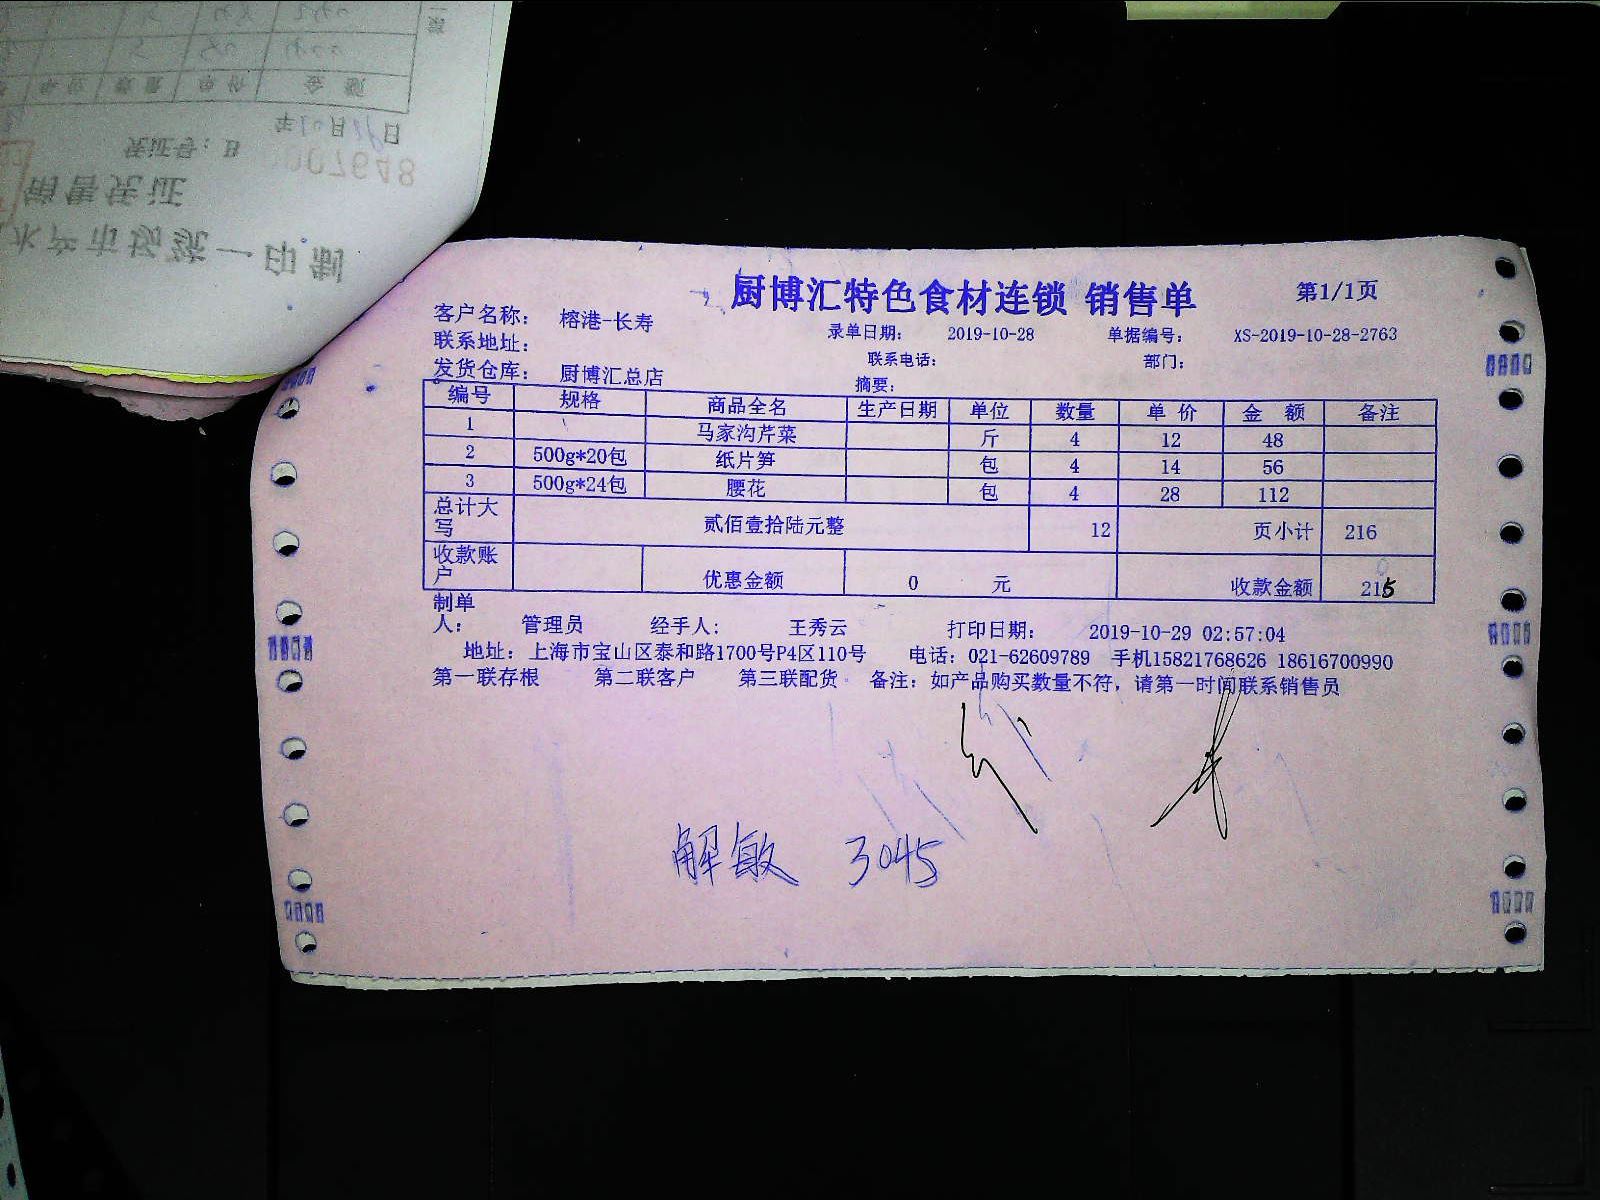 水产市场统一印制
销售凭证
凭证号:
007648
年10月 日
数量 单价 金额
厨博汇特色食材连锁 销售单 第1/1页
客户名称: 榕港-长寿 录单日期: 2019-10-28 单据编号: XS-2019-10-28-2763
联系地址: 联系电话: 部门:
发货仓库: 厨博汇总店 摘要:
编号 规格 商品全名 生产日期 单位 数量 单价 金额 备注
1 马家沟芹菜 斤 4 12 48
2 500g*20包 纸片笋 包 4 14 56
3 500g*24包 腰花 包 4 28 112
总计大写 贰佰壹拾陆元整 12 页小计 216
收款账户 优惠金额 0 元 收款金额 215
制单人: 管理员 经手人: 王秀云 打印日期: 2019-10-29 02:57:04
地址: 上海市宝山区泰和路1700号P4区110号 电话: 021-62609789 手机15821768626 18616700990
第一联存根 第二联客户 第三联配货 备注: 如产品购买数量不符, 请第一时间联系销售员
解敏 3045